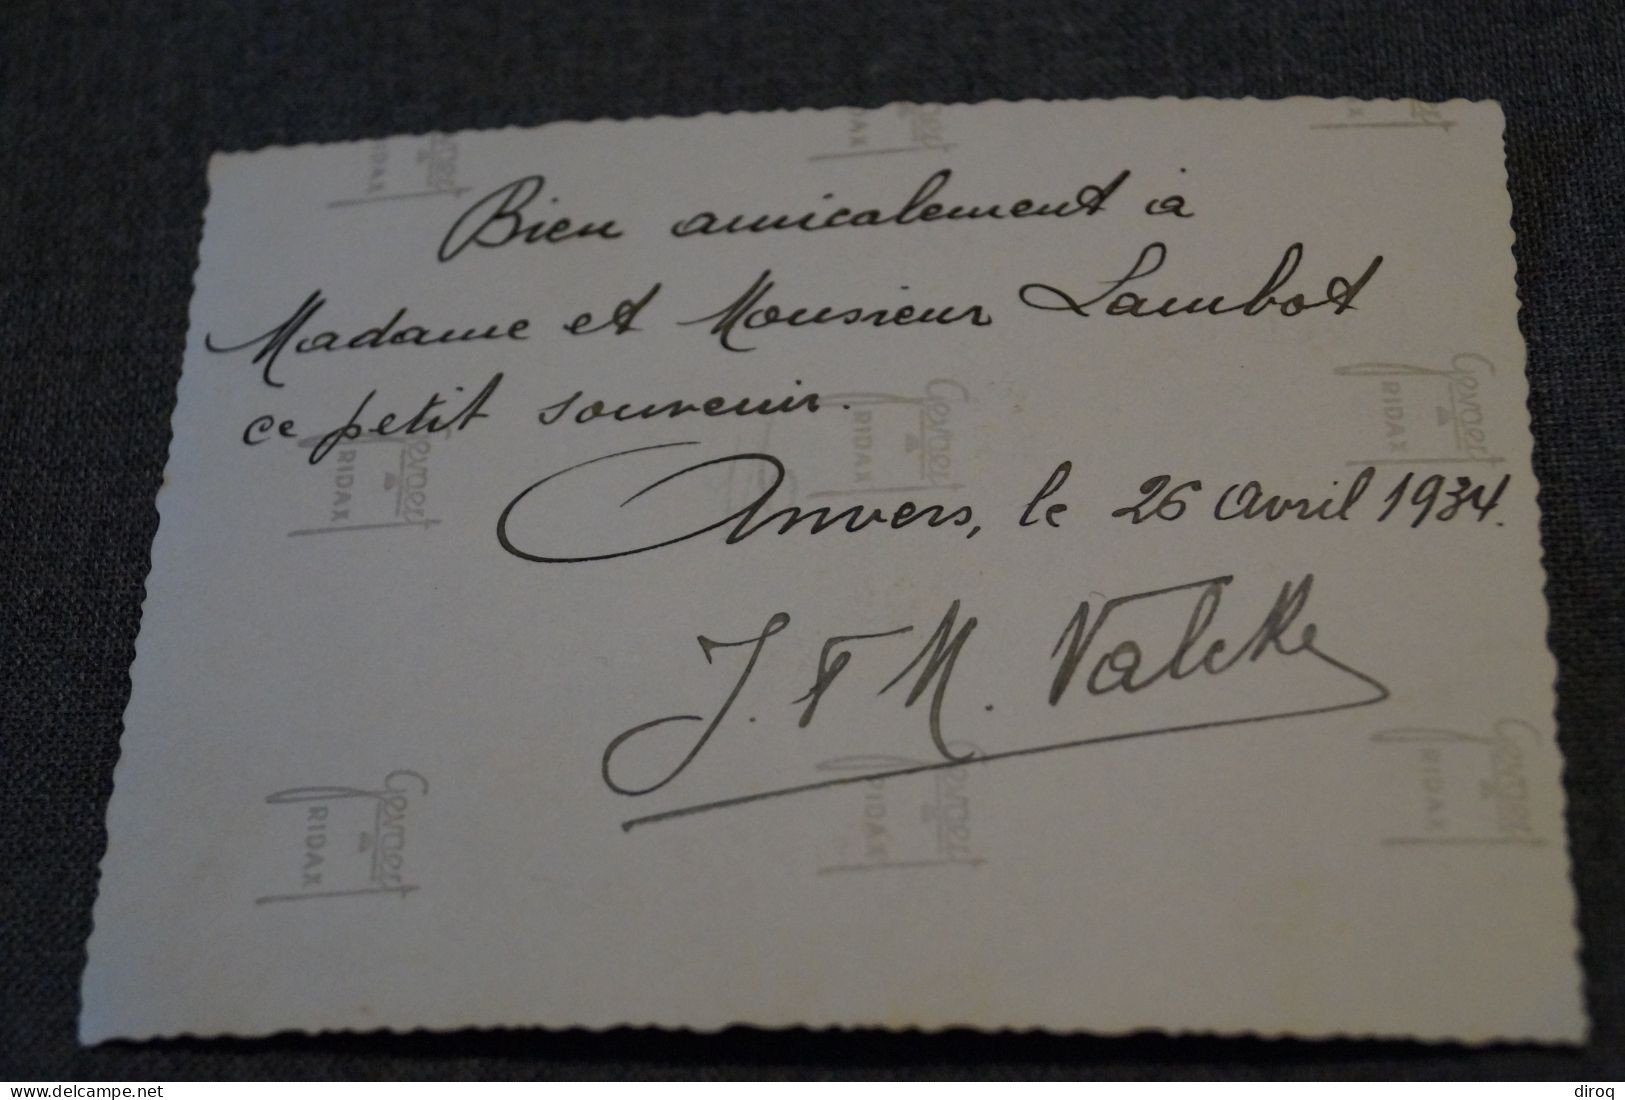 Bien amicalement à
Madame et Monsieur Lambot
ce petit souvenir.
Anvers, le 26 avril 1934.
J. F M. Valcke
Gevaert
RIDAX
Gevaert
RIDAX
Gevaert
RIDAX
Gevaert
RIDAX
Gevaert
RIDAX
Gevaert
RIDAX
delcampe.net
diroq